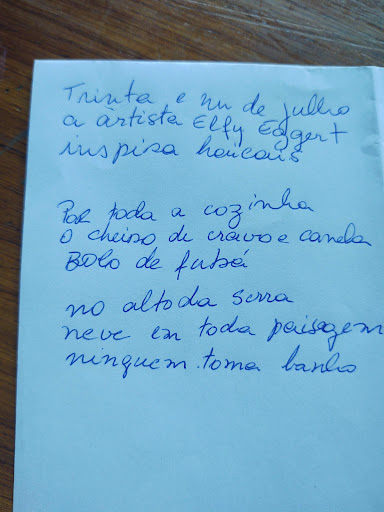 Trinta e um de julho
a artista Elfy Eggert
inspira haicais
Por toda a cozinha
O cheiro de cravo e canela
Bolo de fubá
no alto da serra
neve em toda paisagem
ninguem toma banho